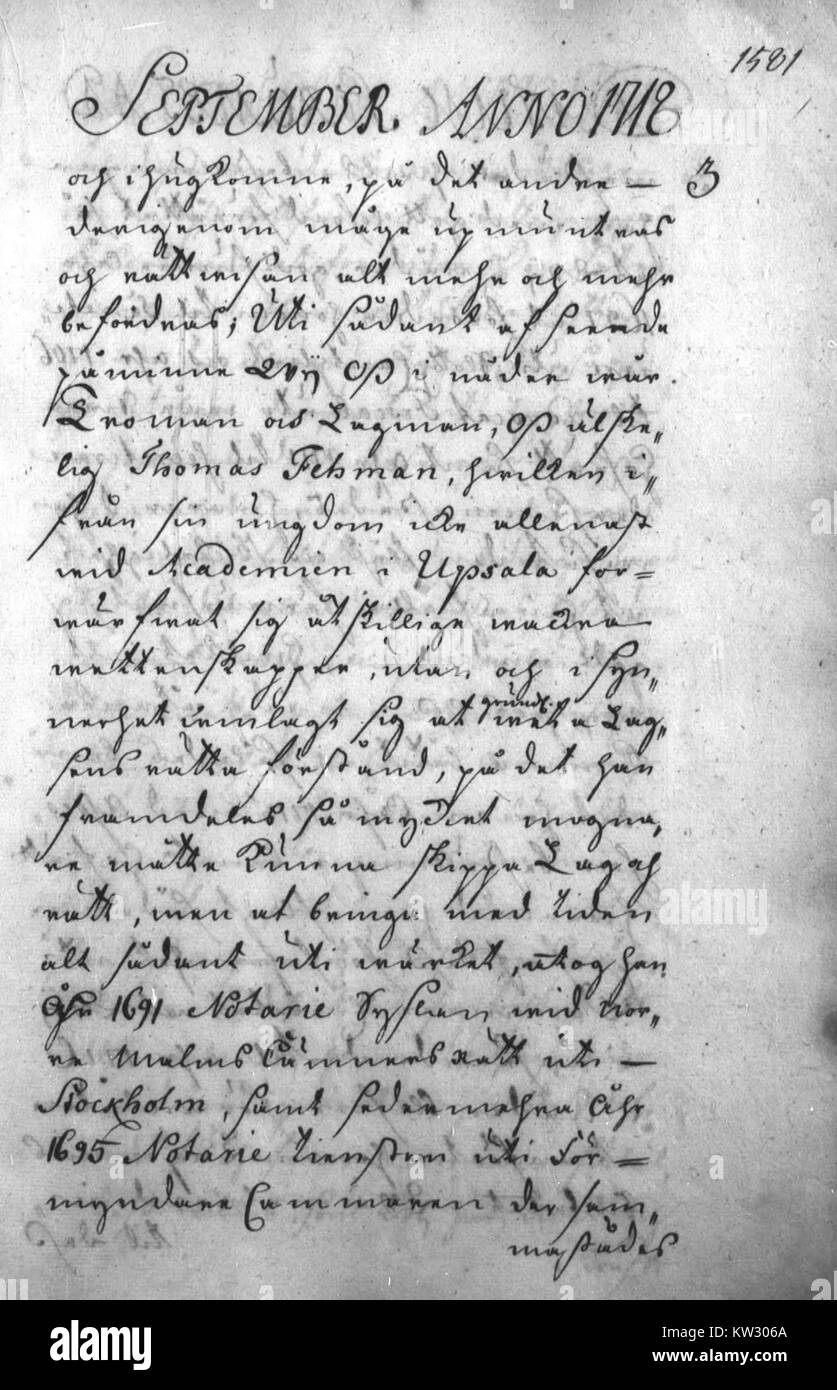 1581
SEPTEMBER. ANNO 1718
och ihugkomne, på det andre — 3
derigenom måge upmuntras
och rättwisan alt mehr och mehr
befordras; Uti sådant afseende
påminne Wij Oß i nåder wår
Troman och Lagman, Oß älske„
lig Thomas Fehman, hwilken i„
från sin ungdom icke allenast
wid Academien i Upsala för=
wärfwat sig åtskillige wackra
wettenskapper, utan och i syn„
nerhet winlagt sig at grundl. weta Lag„
sens rätta förstånd, på det han
framdeles så mycket mogna„
re måtte kunna skippa Lag och
rätt, men at bringa med tiden
alt sådant uti wärket, antog han
Åhr 1691 Notarie Syslan wid Nor„
re Malms Kämners Rätt uti —
Stockholm, samt sedermehra Åhr
1695 Notarie tiensten uti För=
myndare Cammaren der sam„
mastädes
alamy
Image ID: KW306A
www.alamy.com